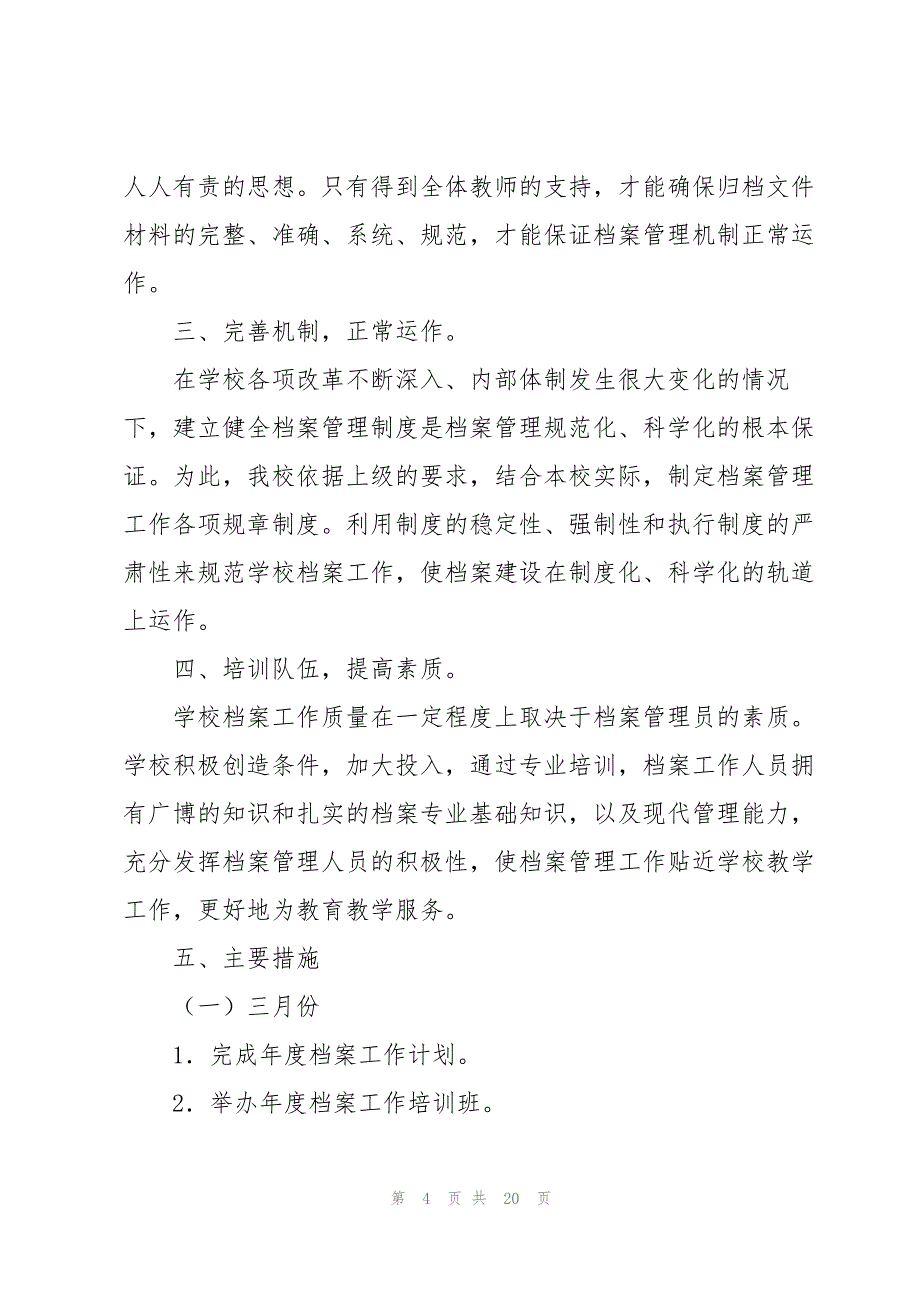 人人有责的思想。只有得到全体教师的支持，才能确保归档文件
材料的完整、准确、系统、规范，才能保证档案管理机制正常运
作。
三、完善机制，正常运作。
在学校各项改革不断深入、内部体制发生很大变化的情况
下，建立健全档案管理制度是档案管理规范化、科学化的根本保
证。为此，我校依据上级的要求，结合本校实际，制定档案管理
工作各项规章制度。利用制度的稳定性、强制性和执行制度的严
肃性来规范学校档案工作，使档案建设在制度化、科学化的轨道
上运作。
四、培训队伍，提高素质。
学校档案工作质量在一定程度上取决于档案管理员的素质。
学校积极创造条件，加大投入，通过专业培训，档案工作人员拥
有广博的知识和扎实的档案专业基础知识，以及现代管理能力，
充分发挥档案管理人员的积极性，使档案管理工作贴近学校教学
工作，更好地为教育教学服务。
五、主要措施
（一）三月份
1．完成年度档案工作计划。
2．举办年度档案工作培训班。
第 4 页 共 20 页